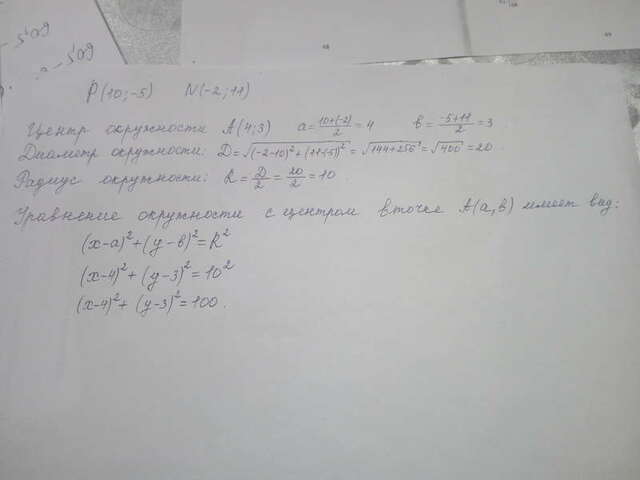 P(10;-5) N(-2;11)
Центр окружности A(4;3) a=\frac{10+(-2)}{2}=4 b=\frac{-5+11}{2}=3
Диаметр окружности: D=√((-2-10)²+(11-(-5))²)=√(144+256)=√400=20.
Радиус окружности: R=\frac{D}{2}=\frac{20}{2}=10.
Уравнение окружности с центром в точке A(a,b) имеет вид:
(x-a)²+(y-b)²=R²
(x-4)²+(y-3)²=10²
(x-4)²+(y-3)²=100.